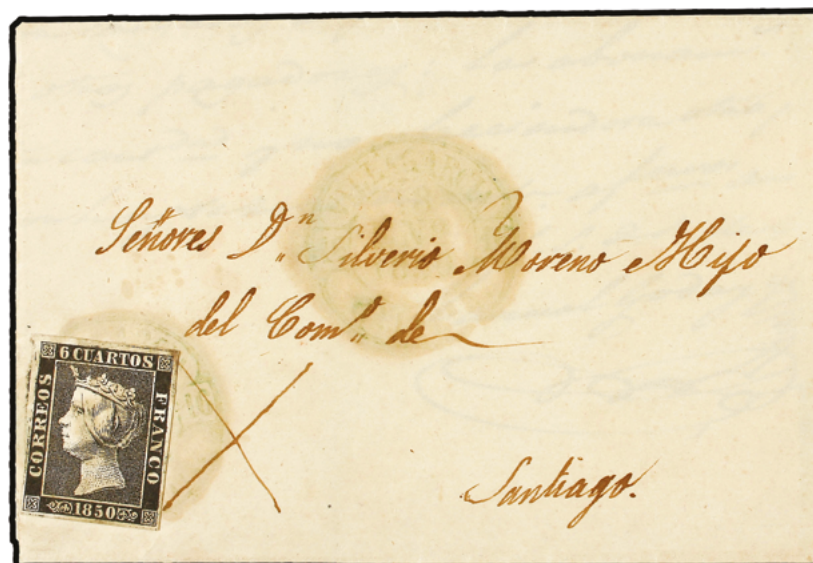 VILLAGARCIA
Señores D.ⁿ Silverio Moreno e Hijo
del Com.º de
Santiago.
6 CUARTOS
CORREOS
FRANCO
1850